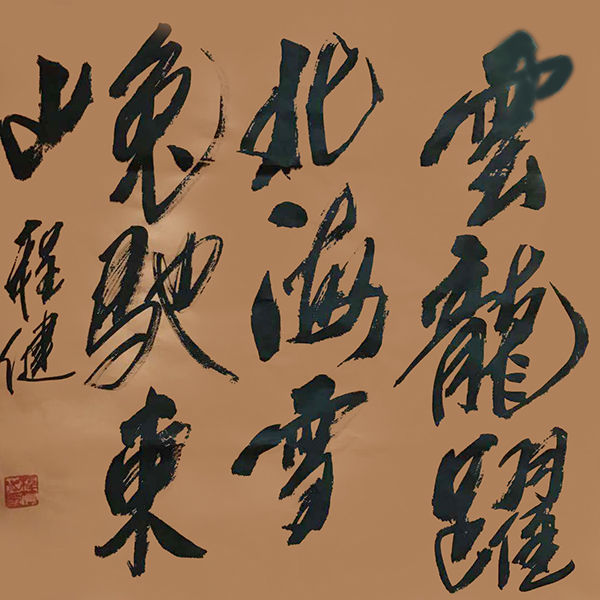 雲龍躍
北海雪
兔馳東
山 程健